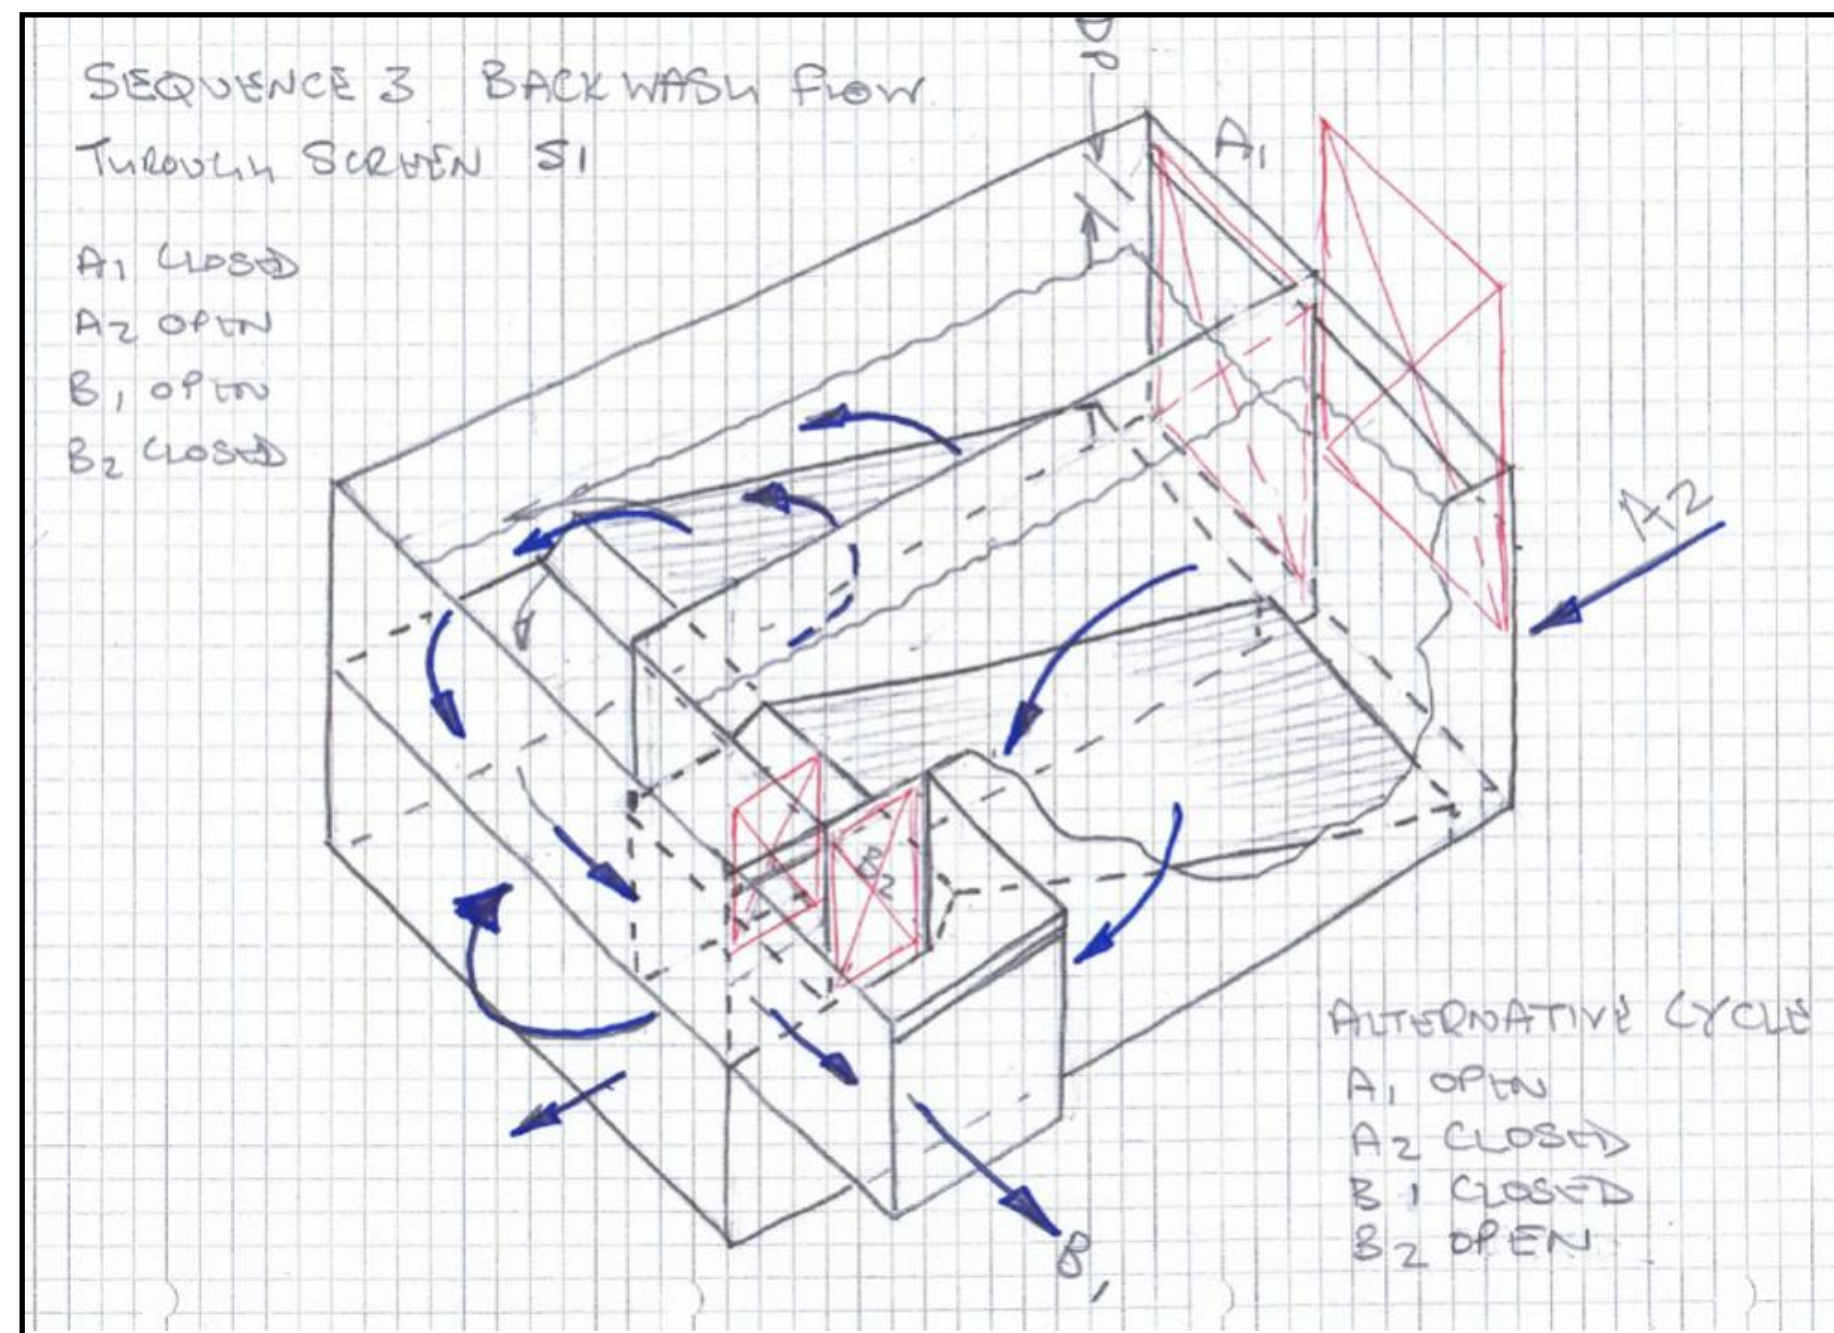 SEQUENCE 3 BACKWASH FLOW
THROUGH SCREEN S1
A1 CLOSED
A2 OPEN
B1 OPEN
B2 CLOSED
DP
A1
A2
B2
B1
ALTERNATIVE CYCLE
A1 OPEN
A2 CLOSED
B1 CLOSED
B2 OPEN